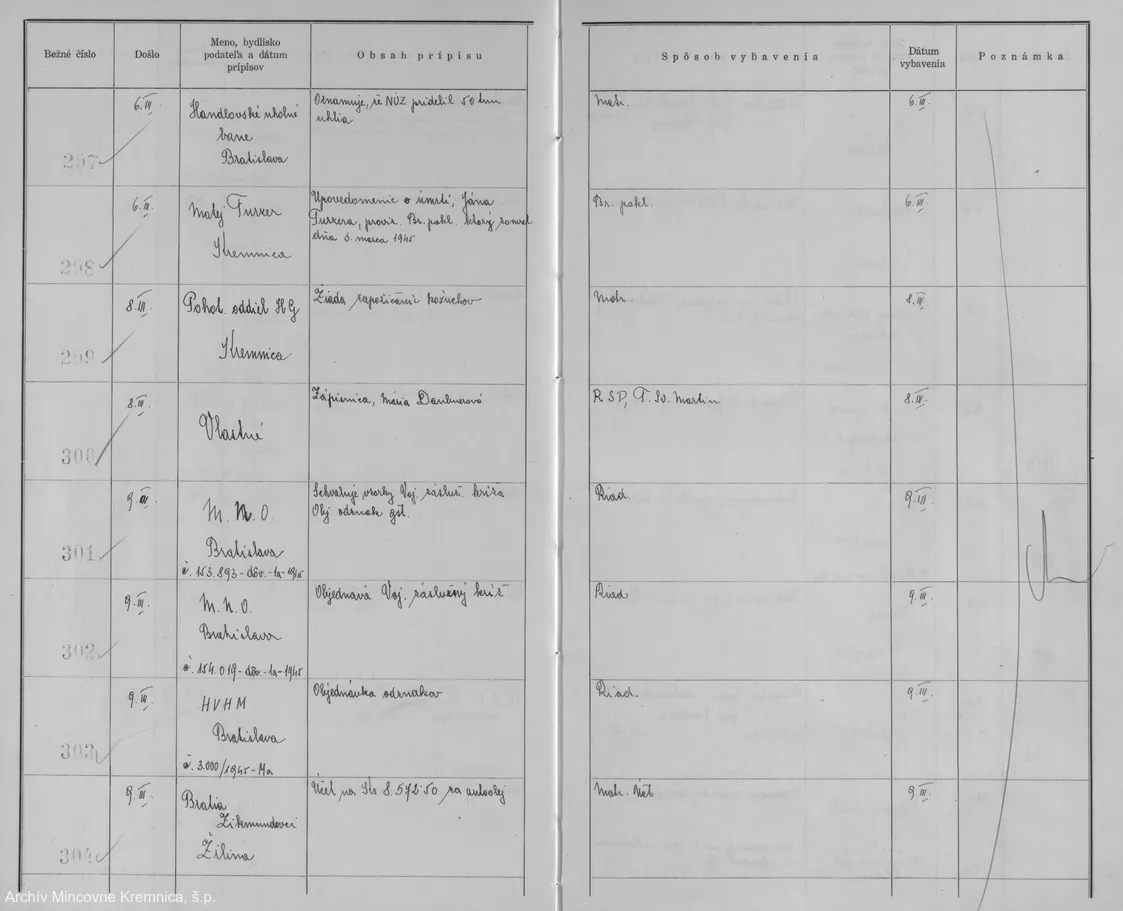 Bežné číslo
Došlo
Meno, bydlisko
podateľa a dátum
prípisov
Obsah prípisu
Spôsob vybavenia
Dátum
vybavenia
Poznámka
297
6.III.
Handlovské uholné
bane
Bratislava
Oznamuje, že NÚZ pridelil 50 tonn
uhlia
Mat.
6.III.
298
6.III.
Matej Turzer
Kremnica
Upovedomenie o úmrtí, Jána
Turzera, proviz. Br. pokl. ktorý zomrel
dňa 5. marca 1945
Br. pokl.
6.III.
299
8.III.
Pohot. oddiel HG
Kremnica
Žiada zapožičanie kožuchov
Mat.
8.III.
300
8.III.
Vlastné
Zápisnica, Mária Daubnerová
RSP, T. Sv. Martin
8.III.
301
9.III.
M.N.O.
Bratislava
č. 153.893-dôv.-1a-1945
Schvaľuje vzorky Voj. záslúž. kríža
Obj. odznak
Riad.
9.III.
302
9.III.
M.N.O.
Bratislava
č. 154.019-dôv-1a-1945
Objednáva Voj. záslužný kríž
Riad
9.III.
303
9.III.
HVHM
Bratislava
č. 3.000/1945-Ma
Objednávka odznakov
Riad.
9.III.
304
9.III.
Bratia
Zikmundovci
Žilina
Účet na Ks 8.572·50 za autoolej
Mat. Účt.
9.III.
Archív Mincovne Kremnica, š.p.